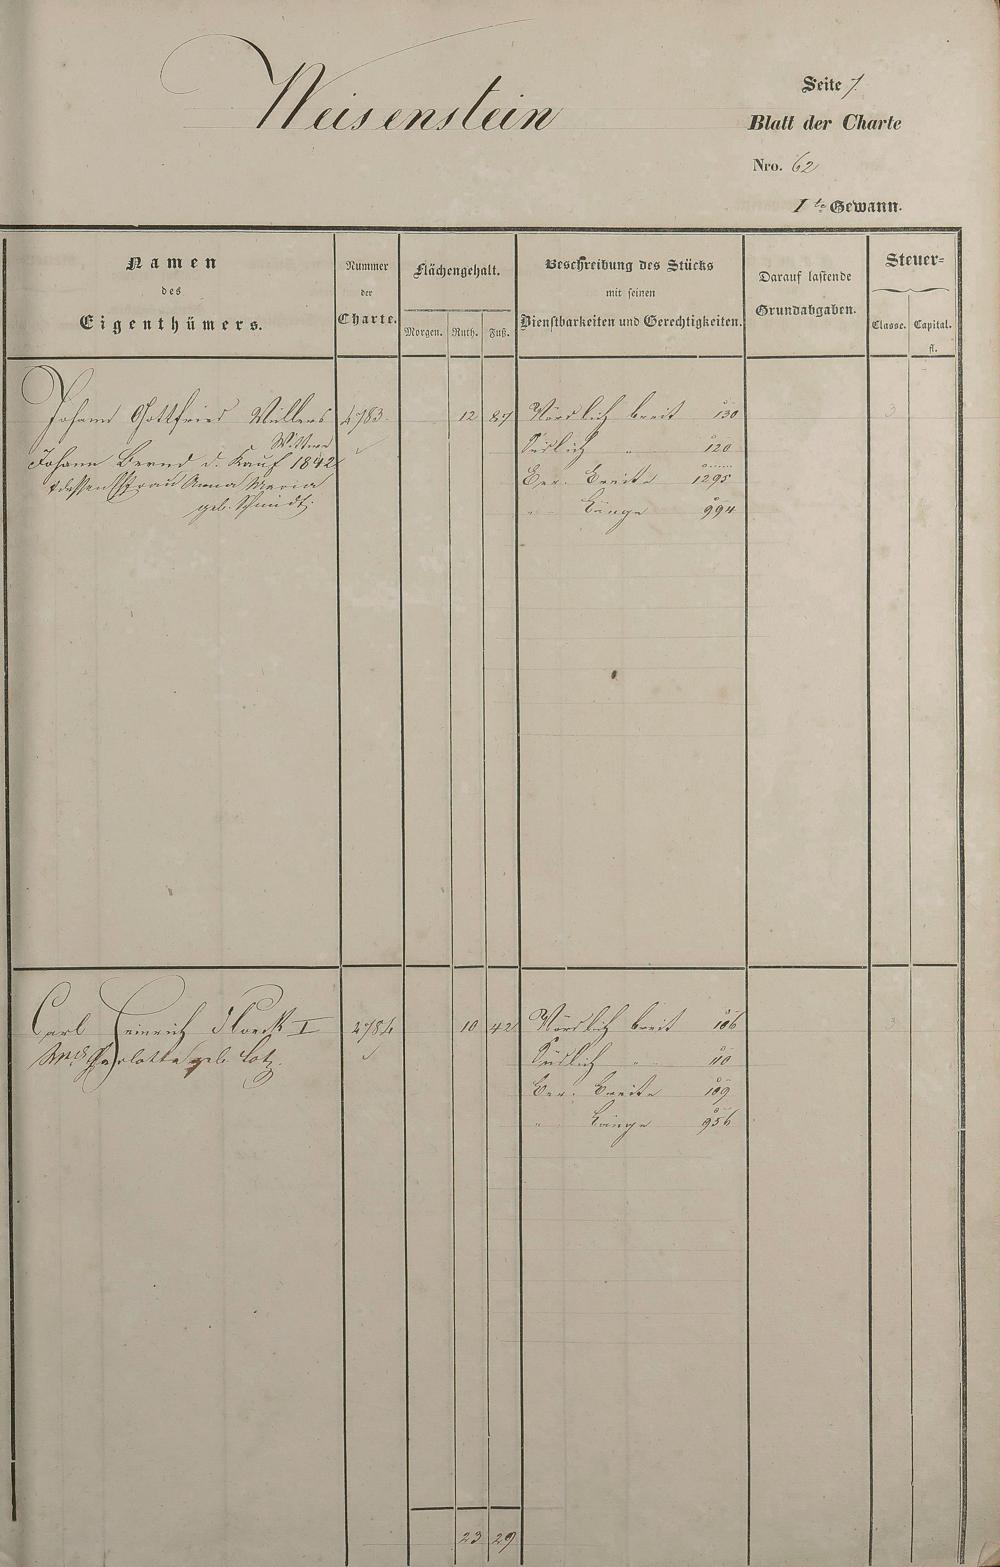 Weisenstein
Seite 7.
Blatt der Charte
Nro. 62
1te Gewann.
Namen des Eigenthümers.
Nummer der Charte.
Flächengehalt.
Morgen. Ruth. Fuß.
Beschreibung des Stücks mit seinen Dienstbarkeiten und Gerechtigkeiten.
Darauf lastende Grundabgaben.
Steuer=
Classe. Capital.
fl.
Johann Gottfried Müllers 4783 12 87 Nördlich breit 130
Wittwe
Südlich " 120
Johann Bernd d. Kauf 1842
Ver. Breite 1295
dessen Frau Anna Maria
geb. Schmidt
" Länge 994
Carl Heinrich Floeck I 4784 10 42 Nördlich breit 106 3
Charlotte geb. Lotz
Südlich " 110
Ver. Breite 109
" Länge 956
23 29